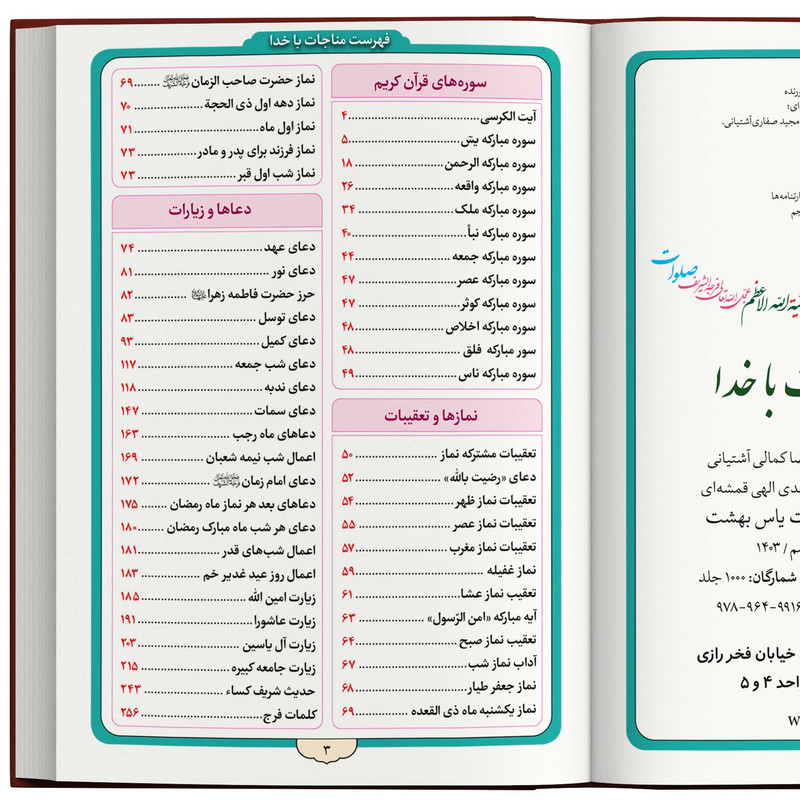 فهرست مناجات با خدا
سوره‌های قرآن کریم
آیت الکرسی ۴
سوره مبارکه یس ۵
سوره مبارکه الرحمن ۱۸
سوره مبارکه واقعه ۲۶
سوره مبارکه ملک ۳۴
سوره مبارکه نبأ ۴۰
سوره مبارکه جمعه ۴۴
سوره مبارکه عصر ۴۷
سوره مبارکه کوثر ۴۷
سوره مبارکه اخلاص ۴۸
سور مبارکه فلق ۴۸
سوره مبارکه ناس ۴۹
نمازها و تعقیبات
تعقیبات مشترکه نماز ۵۰
دعای «رضیت بالله» ۵۲
تعقیبات نماز ظهر ۵۴
تعقیبات نماز عصر ۵۵
تعقیبات نماز مغرب ۵۷
نماز غفیله ۵۹
تعقیب نماز عشا ۶۱
آیه مبارکه «امن الرّسول» ۶۳
تعقیب نماز صبح ۶۴
آداب نماز شب ۶۷
نماز جعفر طیار ۶۸
نماز یکشنبه ماه ذی القعده ۶۹
نماز حضرت صاحب الزمان ۶۹
نماز دهه اول ذی الحجة ۷۰
نماز اول ماه ۷۱
نماز فرزند برای پدر و مادر ۷۳
نماز شب اول قبر ۷۳
دعاها و زیارات
دعای عهد ۷۴
دعای نور ۸۱
حرز حضرت فاطمه زهرا ۸۲
دعای توسل ۸۳
دعای کمیل ۹۳
دعای شب جمعه ۱۱۷
دعای ندبه ۱۱۸
دعای سمات ۱۴۷
دعاهای ماه رجب ۱۶۳
اعمال شب نیمه شعبان ۱۶۹
دعای امام زمان ۱۷۲
دعاهای بعد هر نماز ماه رمضان ۱۷۵
دعای هر شب ماه مبارک رمضان ۱۸۰
اعمال شب‌های قدر ۱۸۱
اعمال روز عید غدیر خم ۱۸۳
زیارت امین الله ۱۸۵
زیارت عاشورا ۱۹۱
زیارت آل یاسین ۲۰۳
زیارت جامعه کبیره ۲۱۵
حدیث شریف کساء ۲۴۳
کلمات فرج ۲۵۶
۳
مجید صفاری‌آشتیانی.
الله الاعظم عجل الله تعالی فرجه الشریف صلوات
با خدا
کمالی آشتیانی
الهی قمشه‌ای
یاس بهشت
/ ۱۴۰۳
شمارگان: ۱۰۰۰ جلد
۹۷۸-۹۶۴-۹۹۱۶
خیابان فخر رازی
واحد ۴ و ۵
w